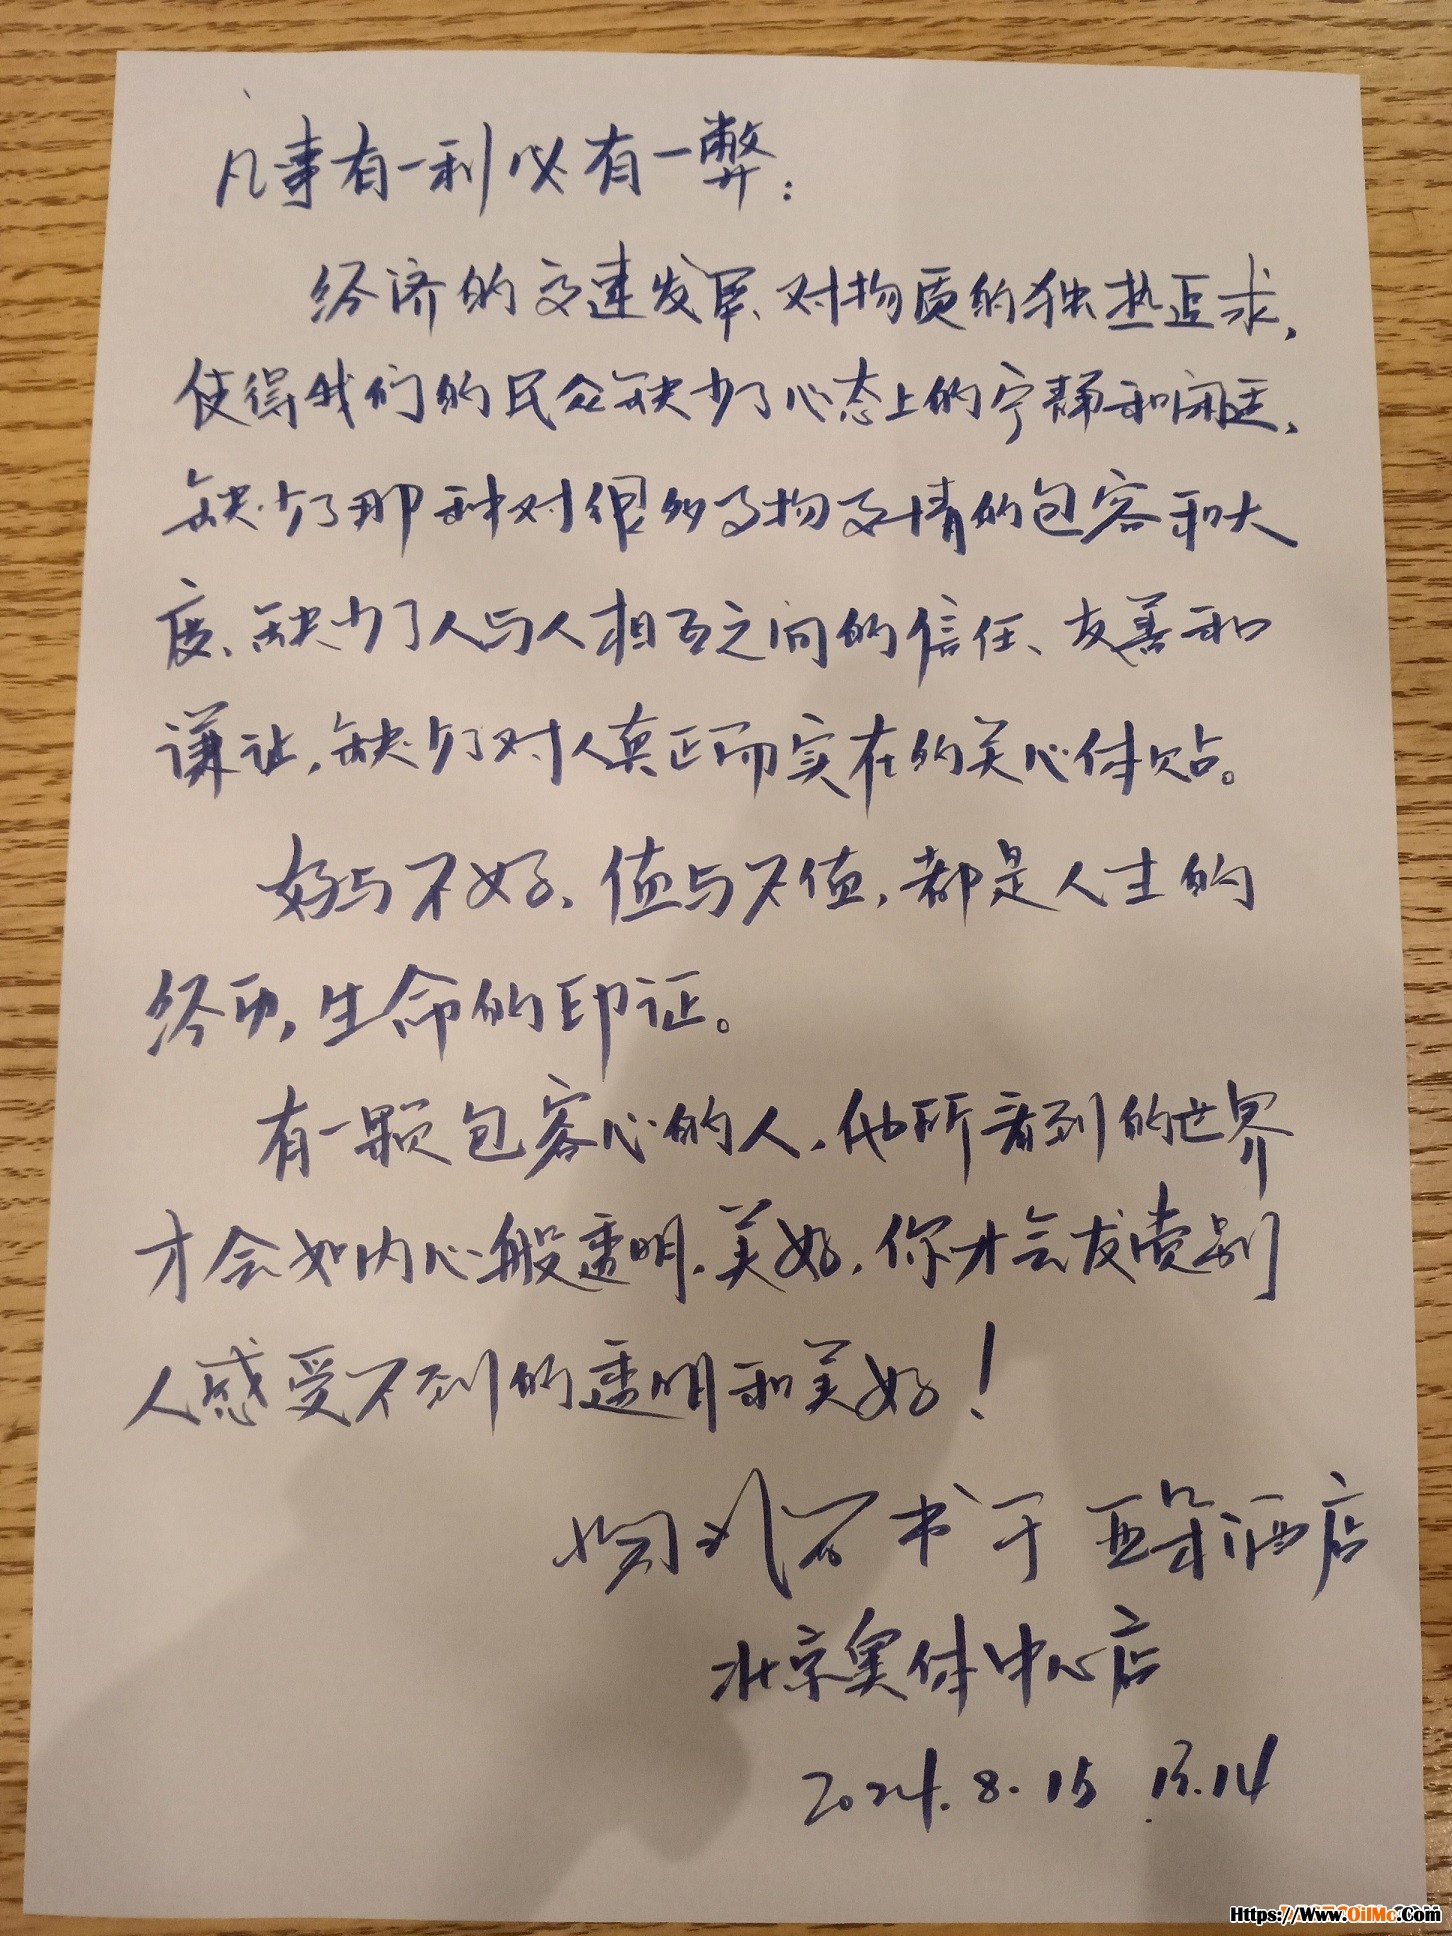 凡事有一利必有一弊：
经济的高速发展、对物质的狂热追求，
使得我们的民众缺少了心态上的宁静和闲适，
缺少了那种对很多事物事情的包容和大
度、缺少了人与人相互之间的信任、友善和
谦让，缺少了对人真正而实在的关心体贴。
好与不好、值与不值，都是人生的
经历，生命的印证。
有一颗包容心的人，他所看到的世界
才会如内心般透明、美好，你才会发觉别
人感受不到的透明和美好！
书于 亚朵酒店
北京奥体中心店
2024.8.15
Https://Www.OilMc.Com